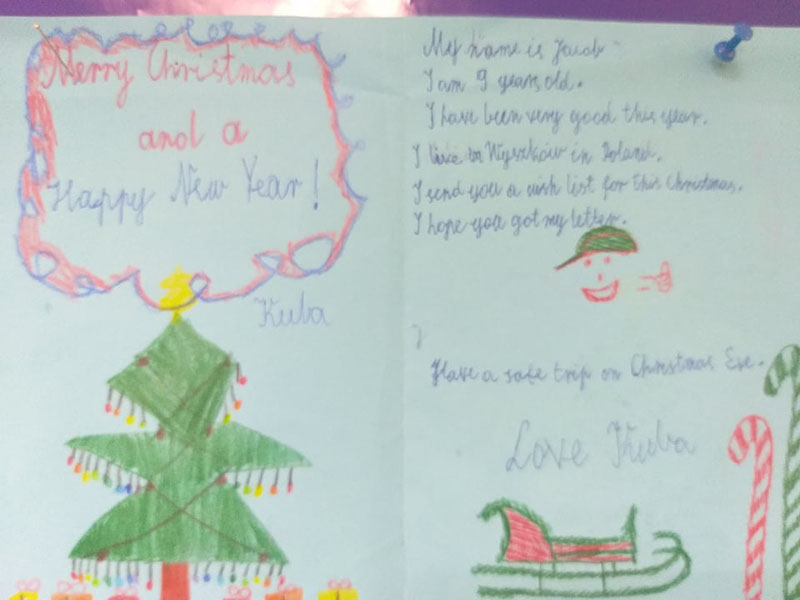 Merry Christmas
and a
Happy New Year!
Kuba
My name is Jacob
I am 9 years old.
I have been very good this year.
I live in Wyszków in Poland.
I send you a wish list for this Christmas.
I hope you got my letter.
Have a safe trip on Christmas Eve.
Love Kuba